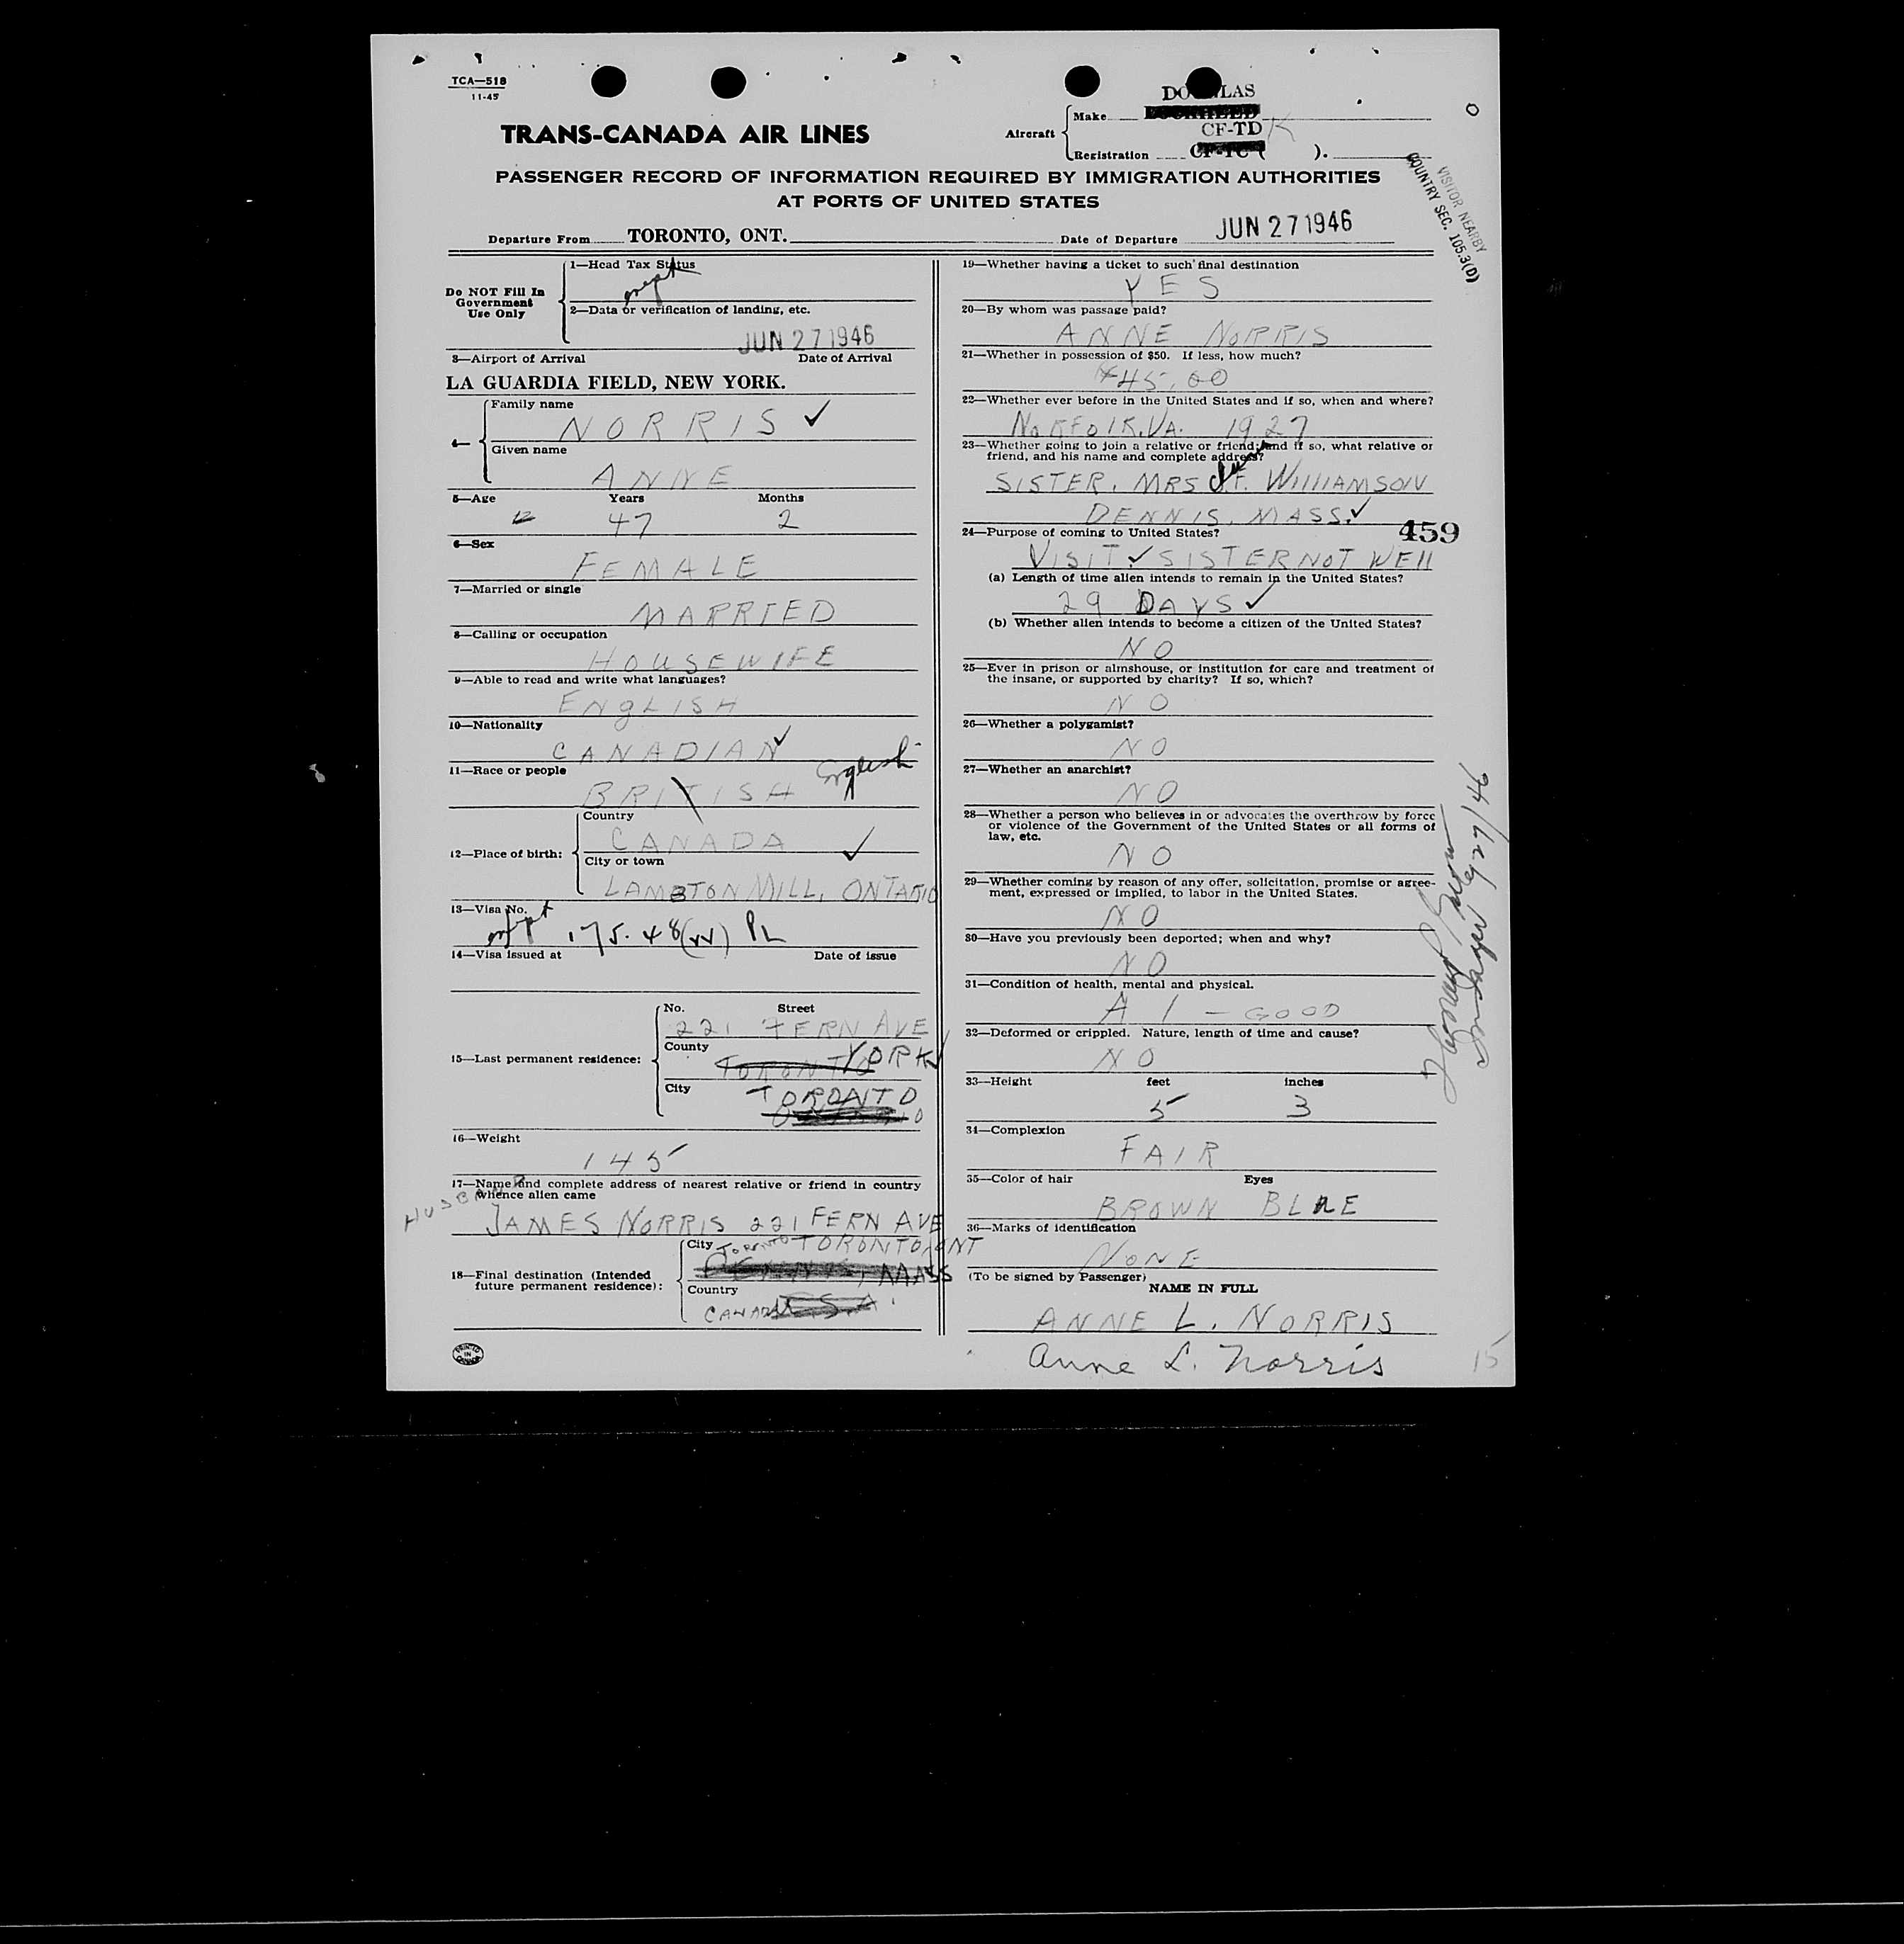 TCA—518
11-45
DOUGLAS
Aircraft
Make
LOCKHEED
CF-TD K
Registration CF-TC ( ).
TRANS-CANADA AIR LINES
PASSENGER RECORD OF INFORMATION REQUIRED BY IMMIGRATION AUTHORITIES
AT PORTS OF UNITED STATES
VISITOR NEARBY
COUNTRY SEC. 105.3(D)
Departure From TORONTO, ONT.
Date of Departure JUN 27 1946
Do NOT Fill In
Government
Use Only
1—Head Tax Status
2—Data or verification of landing, etc.
JUN 27 1946
3—Airport of Arrival Date of Arrival
LA GUARDIA FIELD, NEW YORK.
4—
Family name
NORRIS ✓
Given name
ANNE
5—Age Years Months
12 47 2
6—Sex
FEMALE
7—Married or single
MARRIED
8—Calling or occupation
HOUSEWIFE
9—Able to read and write what languages?
ENgLISH
10—Nationality
CANADIAN ✓
11—Race or people
BRITISH English
12—Place of birth:
Country
CANADA ✓
City or town
LAMBTON MILL, ONTARIO
13—Visa No.
175.48 PL
14—Visa issued at Date of issue
15—Last permanent residence:
No. Street
221 FERN AVE
County
TORONTO YORK ✓
City
TORONTO
16—Weight
145
17—Name and complete address of nearest relative or friend in country
whence alien came
HUSBAND
JAMES NORRIS 221 FERN AVE
18—Final destination (Intended
future permanent residence):
City TORONTO TORONTO, ONT
DENNIS, MASS
Country
CANADA U.S.A.
PRINTED IN CANADA
19—Whether having a ticket to such final destination
YES
20—By whom was passage paid?
ANNE NORRIS
21—Whether in possession of $50. If less, how much?
$45.00
22—Whether ever before in the United States and if so, when and where?
NORFOLK. VA. 1927
23—Whether going to join a relative or friend; and if so, what relative or
friend, and his name and complete address?
SISTER. MRS WILLIAMSON
DENNIS, MASS. ✓
459
24—Purpose of coming to United States?
VISIT ✓ SISTER NOT WEll
(a) Length of time alien intends to remain in the United States?
29 DAYS ✓
(b) Whether alien intends to become a citizen of the United States?
NO
25—Ever in prison or almshouse, or institution for care and treatment of
the insane, or supported by charity? If so, which?
NO
26—Whether a polygamist?
NO
27—Whether an anarchist?
NO
28—Whether a person who believes in or advocates the overthrow by force
or violence of the Government of the United States or all forms of
law, etc.
NO
29—Whether coming by reason of any offer, solicitation, promise or agree-
ment, expressed or implied, to labor in the United States.
NO
30—Have you previously been deported; when and why?
NO
31—Condition of health, mental and physical.
A1 — GOOD
32—Deformed or crippled. Nature, length of time and cause?
NO
33—Height feet inches
5 3
34—Complexion
FAIR
35—Color of hair Eyes
BROWN BLUE
36—Marks of identification
NONE
(To be signed by Passenger)
NAME IN FULL
ANNE L. NORRIS
Anne L. Norris
15